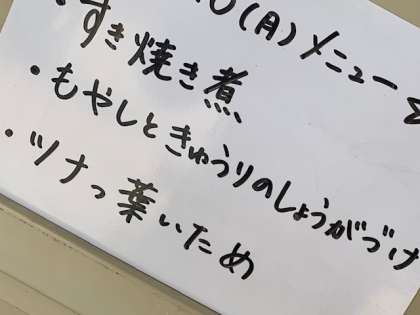 0(月)メニュー
・すき焼き煮
・もやしときゅうりのしょうがづけ
・ツナっ葉いため